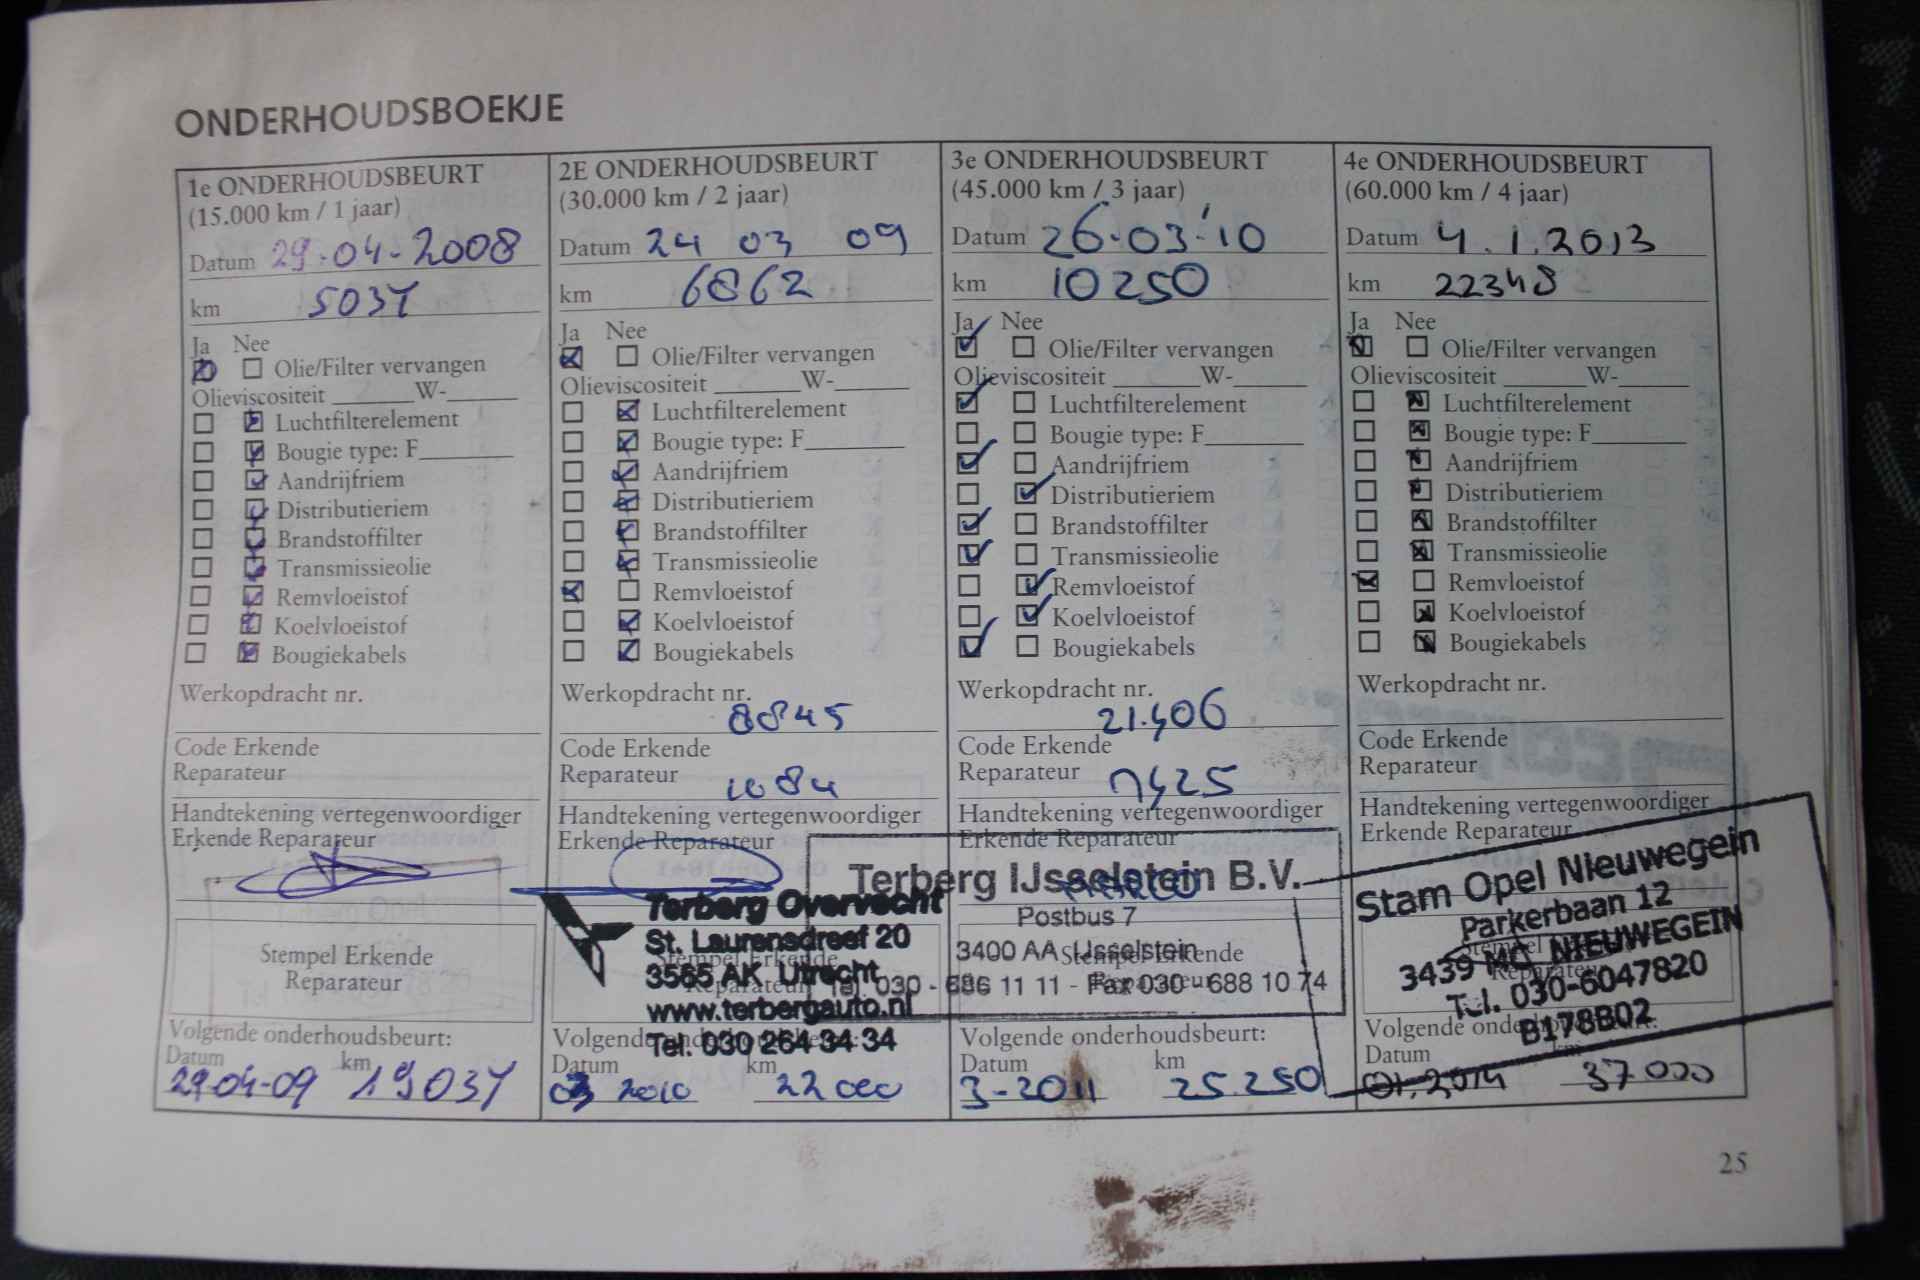 ONDERHOUDSBOEKJE
1e ONDERHOUDSBEURT
(15.000 km / 1 jaar)
Datum 29-04-2008
km 5037
Ja Nee
Olie/Filter vervangen
Olieviscositeit W-
Luchtfilterelement
Bougie type: F
Aandrijfriem
Distributieriem
Brandstoffilter
Transmissieolie
Remvloeistof
Koelvloeistof
Bougiekabels
Werkopdracht nr.
Code Erkende
Reparateur
Handtekening vertegenwoordiger
Erkende Reparateur
Stempel Erkende
Reparateur
Volgende onderhoudsbeurt:
Datum km
29-04-09 19037
2E ONDERHOUDSBEURT
(30.000 km / 2 jaar)
Datum 24 03 09
km 6862
Ja Nee
Olie/Filter vervangen
Olieviscositeit W-
Luchtfilterelement
Bougie type: F
Aandrijfriem
Distributieriem
Brandstoffilter
Transmissieolie
Remvloeistof
Koelvloeistof
Bougiekabels
Werkopdracht nr.
8845
Code Erkende
Reparateur 1084
Handtekening vertegenwoordiger
Erkende Reparateur
Terberg Overvecht
St. Laurensdreef 20
Stempel Erkende
3565 AK Utrecht
Reparateur
www.terbergauto.nl
Tel. 030 264 34 34
Volgende
Datum km
03 2010 22000
3e ONDERHOUDSBEURT
(45.000 km / 3 jaar)
Datum 26-03-'10
km 10250
Ja Nee
Olie/Filter vervangen
Olieviscositeit W-
Luchtfilterelement
Bougie type: F
Aandrijfriem
Distributieriem
Brandstoffilter
Transmissieolie
Remvloeistof
Koelvloeistof
Bougiekabels
Werkopdracht nr.
21406
Code Erkende
Reparateur
Handtekening vertegenwoordiger
Erkende Reparateur
Terberg IJsselstein B.V.
Postbus 7
3400 AA IJsselstein
Stempel Erkende
Reparateur
Tel. 030 - 686 11 11 - Fax 030 - 688 10 74
Volgende onderhoudsbeurt:
Datum km
3-2011 25.250
4e ONDERHOUDSBEURT
(60.000 km / 4 jaar)
Datum 4.1.2013
km 22348
Ja Nee
Olie/Filter vervangen
Olieviscositeit W-
Luchtfilterelement
Bougie type: F
Aandrijfriem
Distributieriem
Brandstoffilter
Transmissieolie
Remvloeistof
Koelvloeistof
Bougiekabels
Werkopdracht nr.
Code Erkende
Reparateur
Handtekening vertegenwoordiger
Erkende Reparateur
Stam Opel Nieuwegein
Parkerbaan 12
3439 MC NIEUWEGEIN
Tel. 030-6047820
B178B02
Volgende
Datum km
01.2014 37000
25